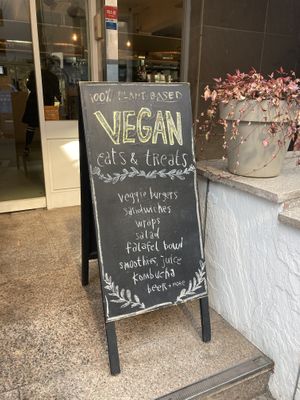 100% PLANT-BASED
VEGAN
eats & treats
veggie burgers
sandwiches
wraps
salad
falafel bowl
smoothies, juice
kombucha
beer + more